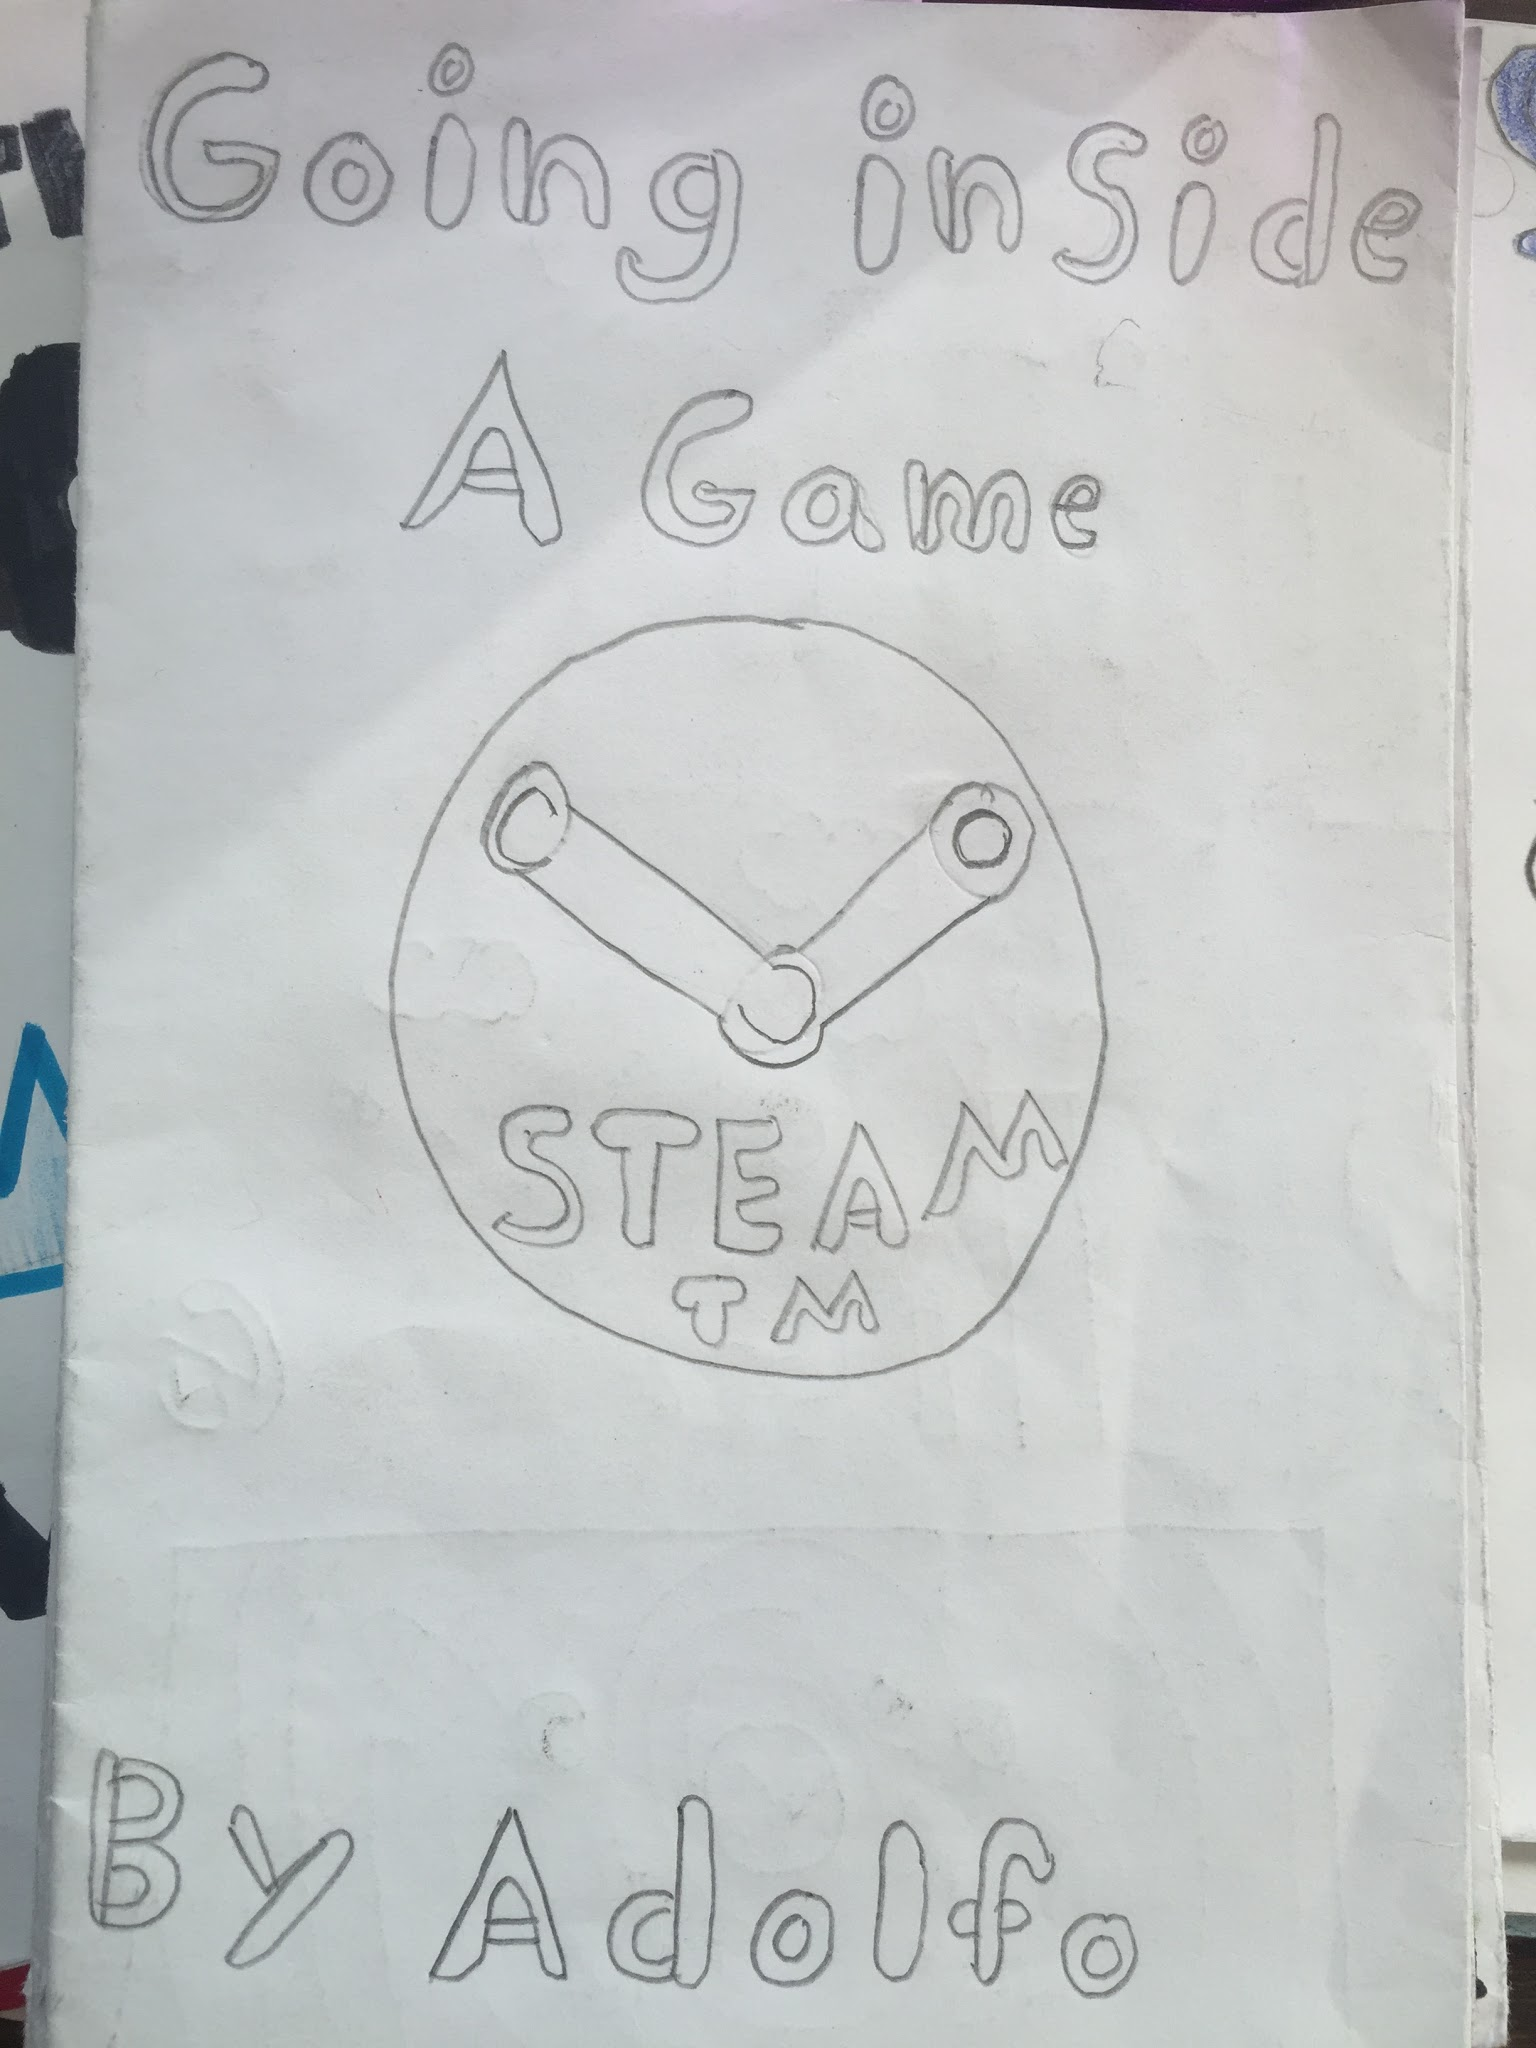 Going inside
A Game
STEAM
TM
By Adolfo